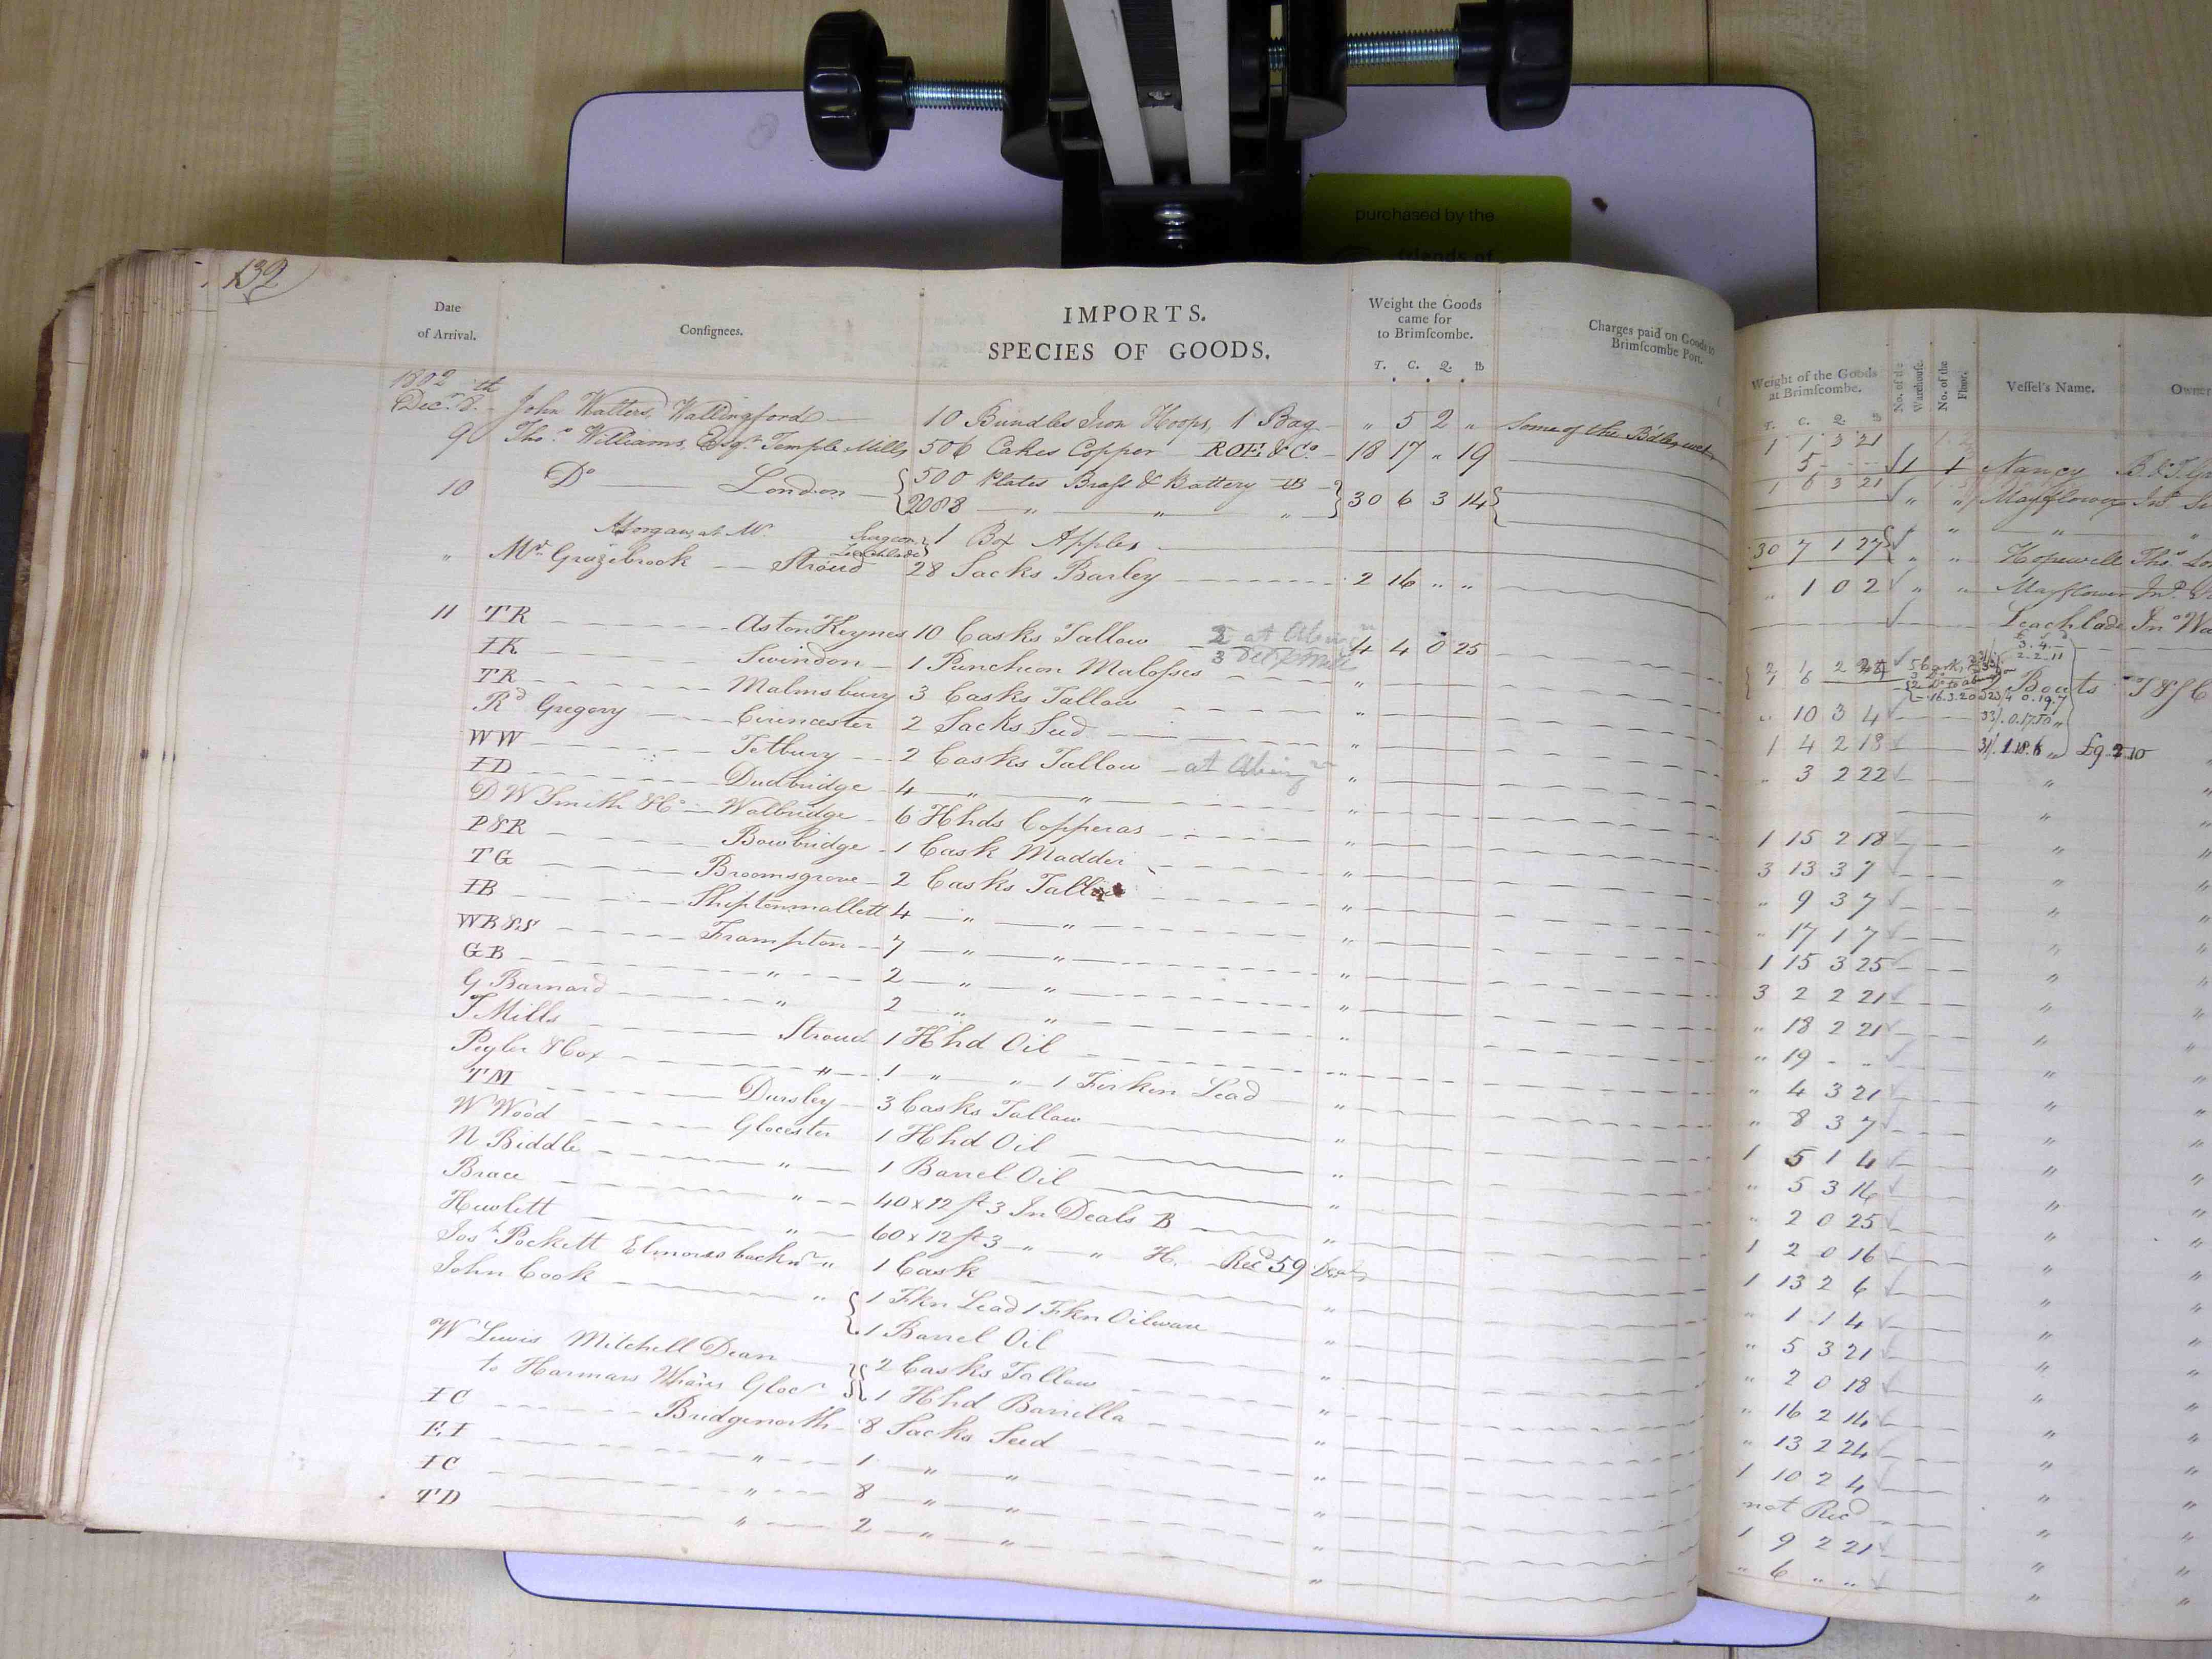 purchased by the
friends of
132
Date of Arrival.
Consignees.
IMPORTS.
SPECIES OF GOODS.
Weight the Goods came for to Brimscombe.
T. C. Q. lb
Charges paid on Goods to Brimscombe Port.
Weight of the Goods at Brimscombe.
T. C. Q. lb
No. of the Warehouse.
No. of the Floor.
Vessel's Name.
Owner
1802
Decr. 8th John Walters, Wallingford 10 Bundles Iron Hoops, 1 Bag " 5 2 " Some of the Bdles wet
9 Thos. Williams, Esqr. Temple Mills 506 Cakes Copper ROE & Co. 18 17 " 19
10 Do London 500 Plates Brass & Battery 30 6 3 14
2088 " " "
Morgan, at Mr. Surgeon Leachlade 1 Box Apples
" Mr. Grazebrook Stroud 28 Sacks Barley 2 16 " "
11 TR Aston Keynes 10 Casks Tallow 4 4 0 25
IK Swindon 1 Puncheon Malosses "
TR Malmsbury 3 Casks Tallow "
Rd Gregory Cirencester 2 Sacks Seed "
WW Tetbury 2 Casks Tallow at Abingn "
ID Dudbridge 4 " " "
D W Smith & Co Walbridge 6 Hhds Copperas "
P&R Bowbridge 1 Cask Madder "
TG Broomsgrove 2 Casks Tallow "
IB Shiptonmallett 4 " " "
WB&S Frampton 7 " " "
GB " 2 " " "
G Barnard " 2 " " "
T Mills Stroud 1 Hhd Oil "
Pegler & Cox " 1 " " 1 Firken Lead "
TM Dursley 3 Casks Tallow "
W Wood Glocester 1 Hhd Oil "
N Biddle " 1 Barrel Oil "
Brace " 40 x 12 ft 3 In Deals B "
Hewlett " 60 x 12 ft 3 " " H. Recd 59 Deals
Jos. Pockett Elmores back " 1 Cask "
John Cook " 1 Fkn Lead 1 Fkn Oilware "
1 Barrel Oil
W Lewis Mitchell Dean 2 Casks Tallow "
to Harmars Wharf Glocr 1 Hhd Barrella "
IC Bridgenorth 8 Sacks Seed "
EI " 1 " " "
IC " 8 " " "
TD " 2 " " "
1 1 3 21
5 1 1 Nancy
1 6 3 21 Mayflower
30 7 1 27 Hopewell Thos.
" 1 0 2 Mayflower
Leachlade
Boats
" 10 3 4
1 4 2 18 £9.2.10
" 3 2 22 "
1 15 2 18 "
3 13 3 7 "
" 9 3 7 "
" 17 1 7 "
1 15 3 25 "
3 2 2 21 "
" 18 2 21 "
" 19 - - "
" 4 3 21 "
" 8 3 7 "
1 5 1 4 "
" 5 3 16 "
" 2 0 25 "
1 2 0 16 "
1 13 2 6 "
" 1 1 4 "
" 5 3 21 "
" 2 0 18 "
" 16 2 14 "
" 13 2 24 "
1 10 2 4 "
not Recd "
1 9 2 21 "
" 6 " " "